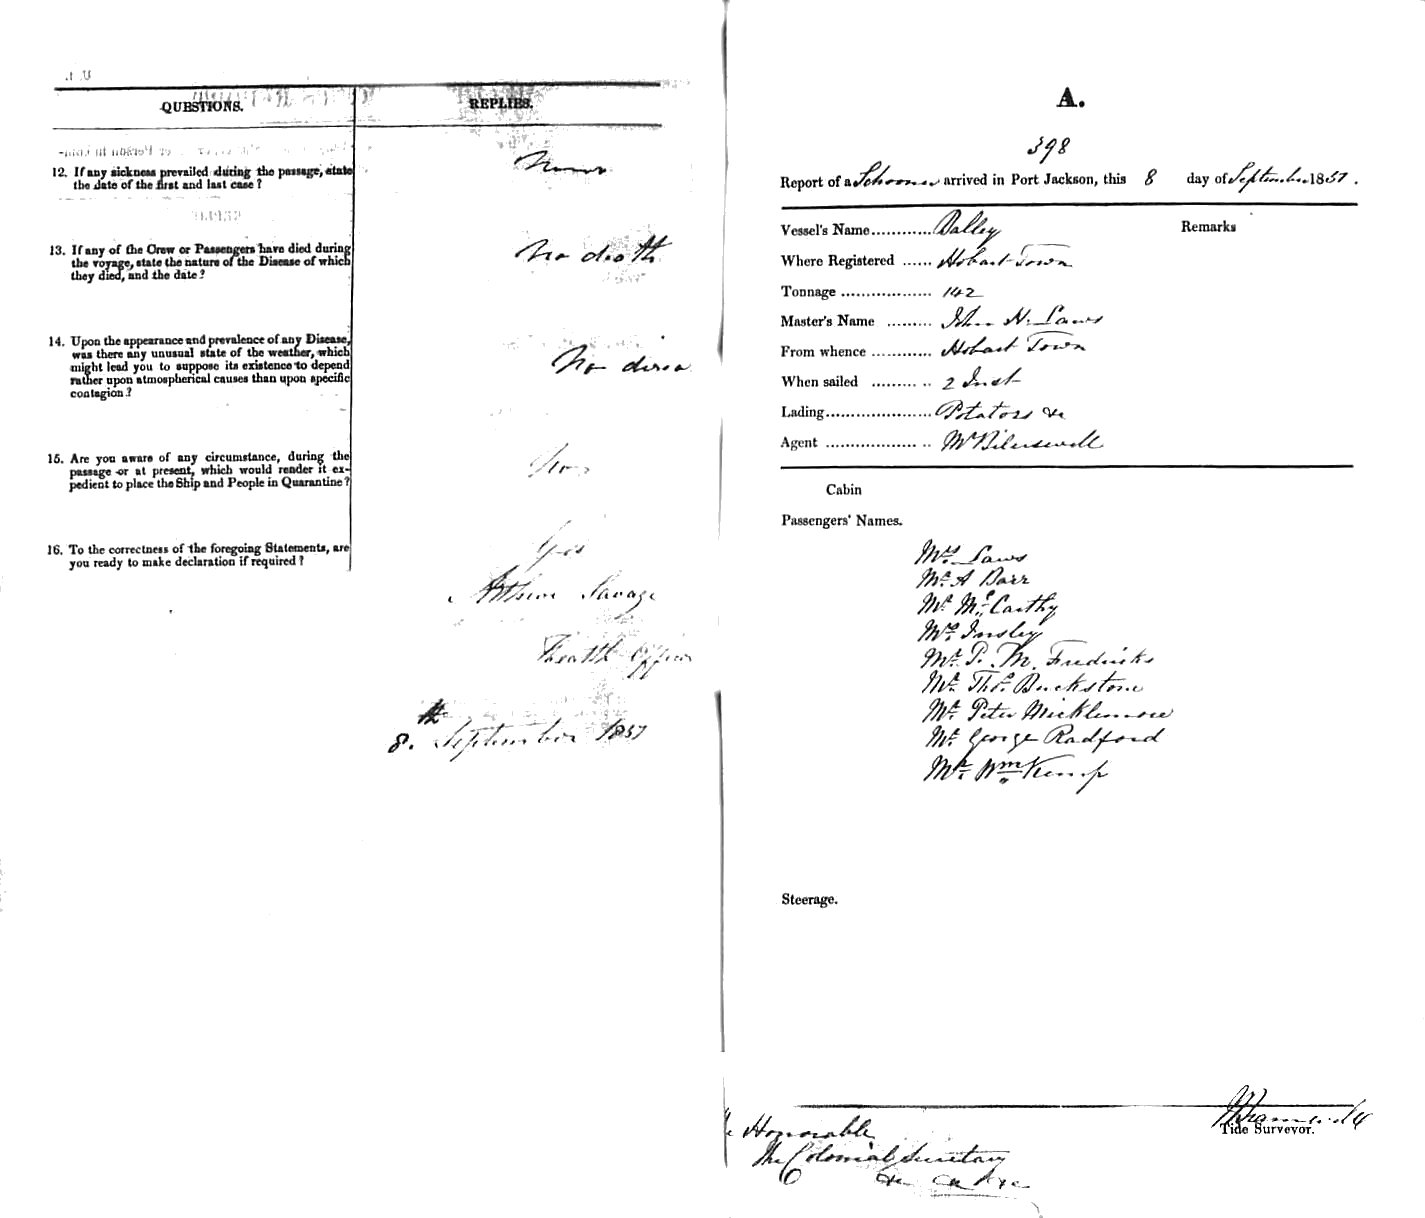 QUESTIONS. REPLIES.
12. If any sickness prevailed during the passage, state
the date of the first and last case?
None
13. If any of the Crew or Passengers have died during
the voyage, state the nature of the Disease of which
they died, and the date?
No death
14. Upon the appearance and prevalence of any Disease,
was there any unusual state of the weather, which
might lead you to suppose its existence to depend
rather upon atmospherical causes than upon specific
contagion?
No disea
15. Are you aware of any circumstance, during the
passage or at present, which would render it ex-
pedient to place the Ship and People in Quarantine?
16. To the correctness of the foregoing Statements, are
you ready to make declaration if required?
Yes
Savage
Health Officer
8th September 1857
A.
398
Report of a Schooner arrived in Port Jackson, this 8 day of September 1857.
Vessel's Name............ Dalley Remarks
Where Registered ...... Hobart Town
Tonnage .................. 142
Master's Name ......... John H. Laws
From whence ............ Hobart Town
When sailed ......... .. 2 Inst
Lading..................... Potatoes &c
Agent .................. .. Mr
Cabin
Passengers' Names.
Mrs. Laws
Mr. A Barr
Mr. McCarthy
Insley
Mr. P. M. Fredricks
Mr. Thos. Buckstone
Mr. Peter Micklemore
Mr. George Radford
Mr. Wm Kemp
Steerage.
Tide Surveyor.
Honorable
The Colonial Secretary
&c &c &c